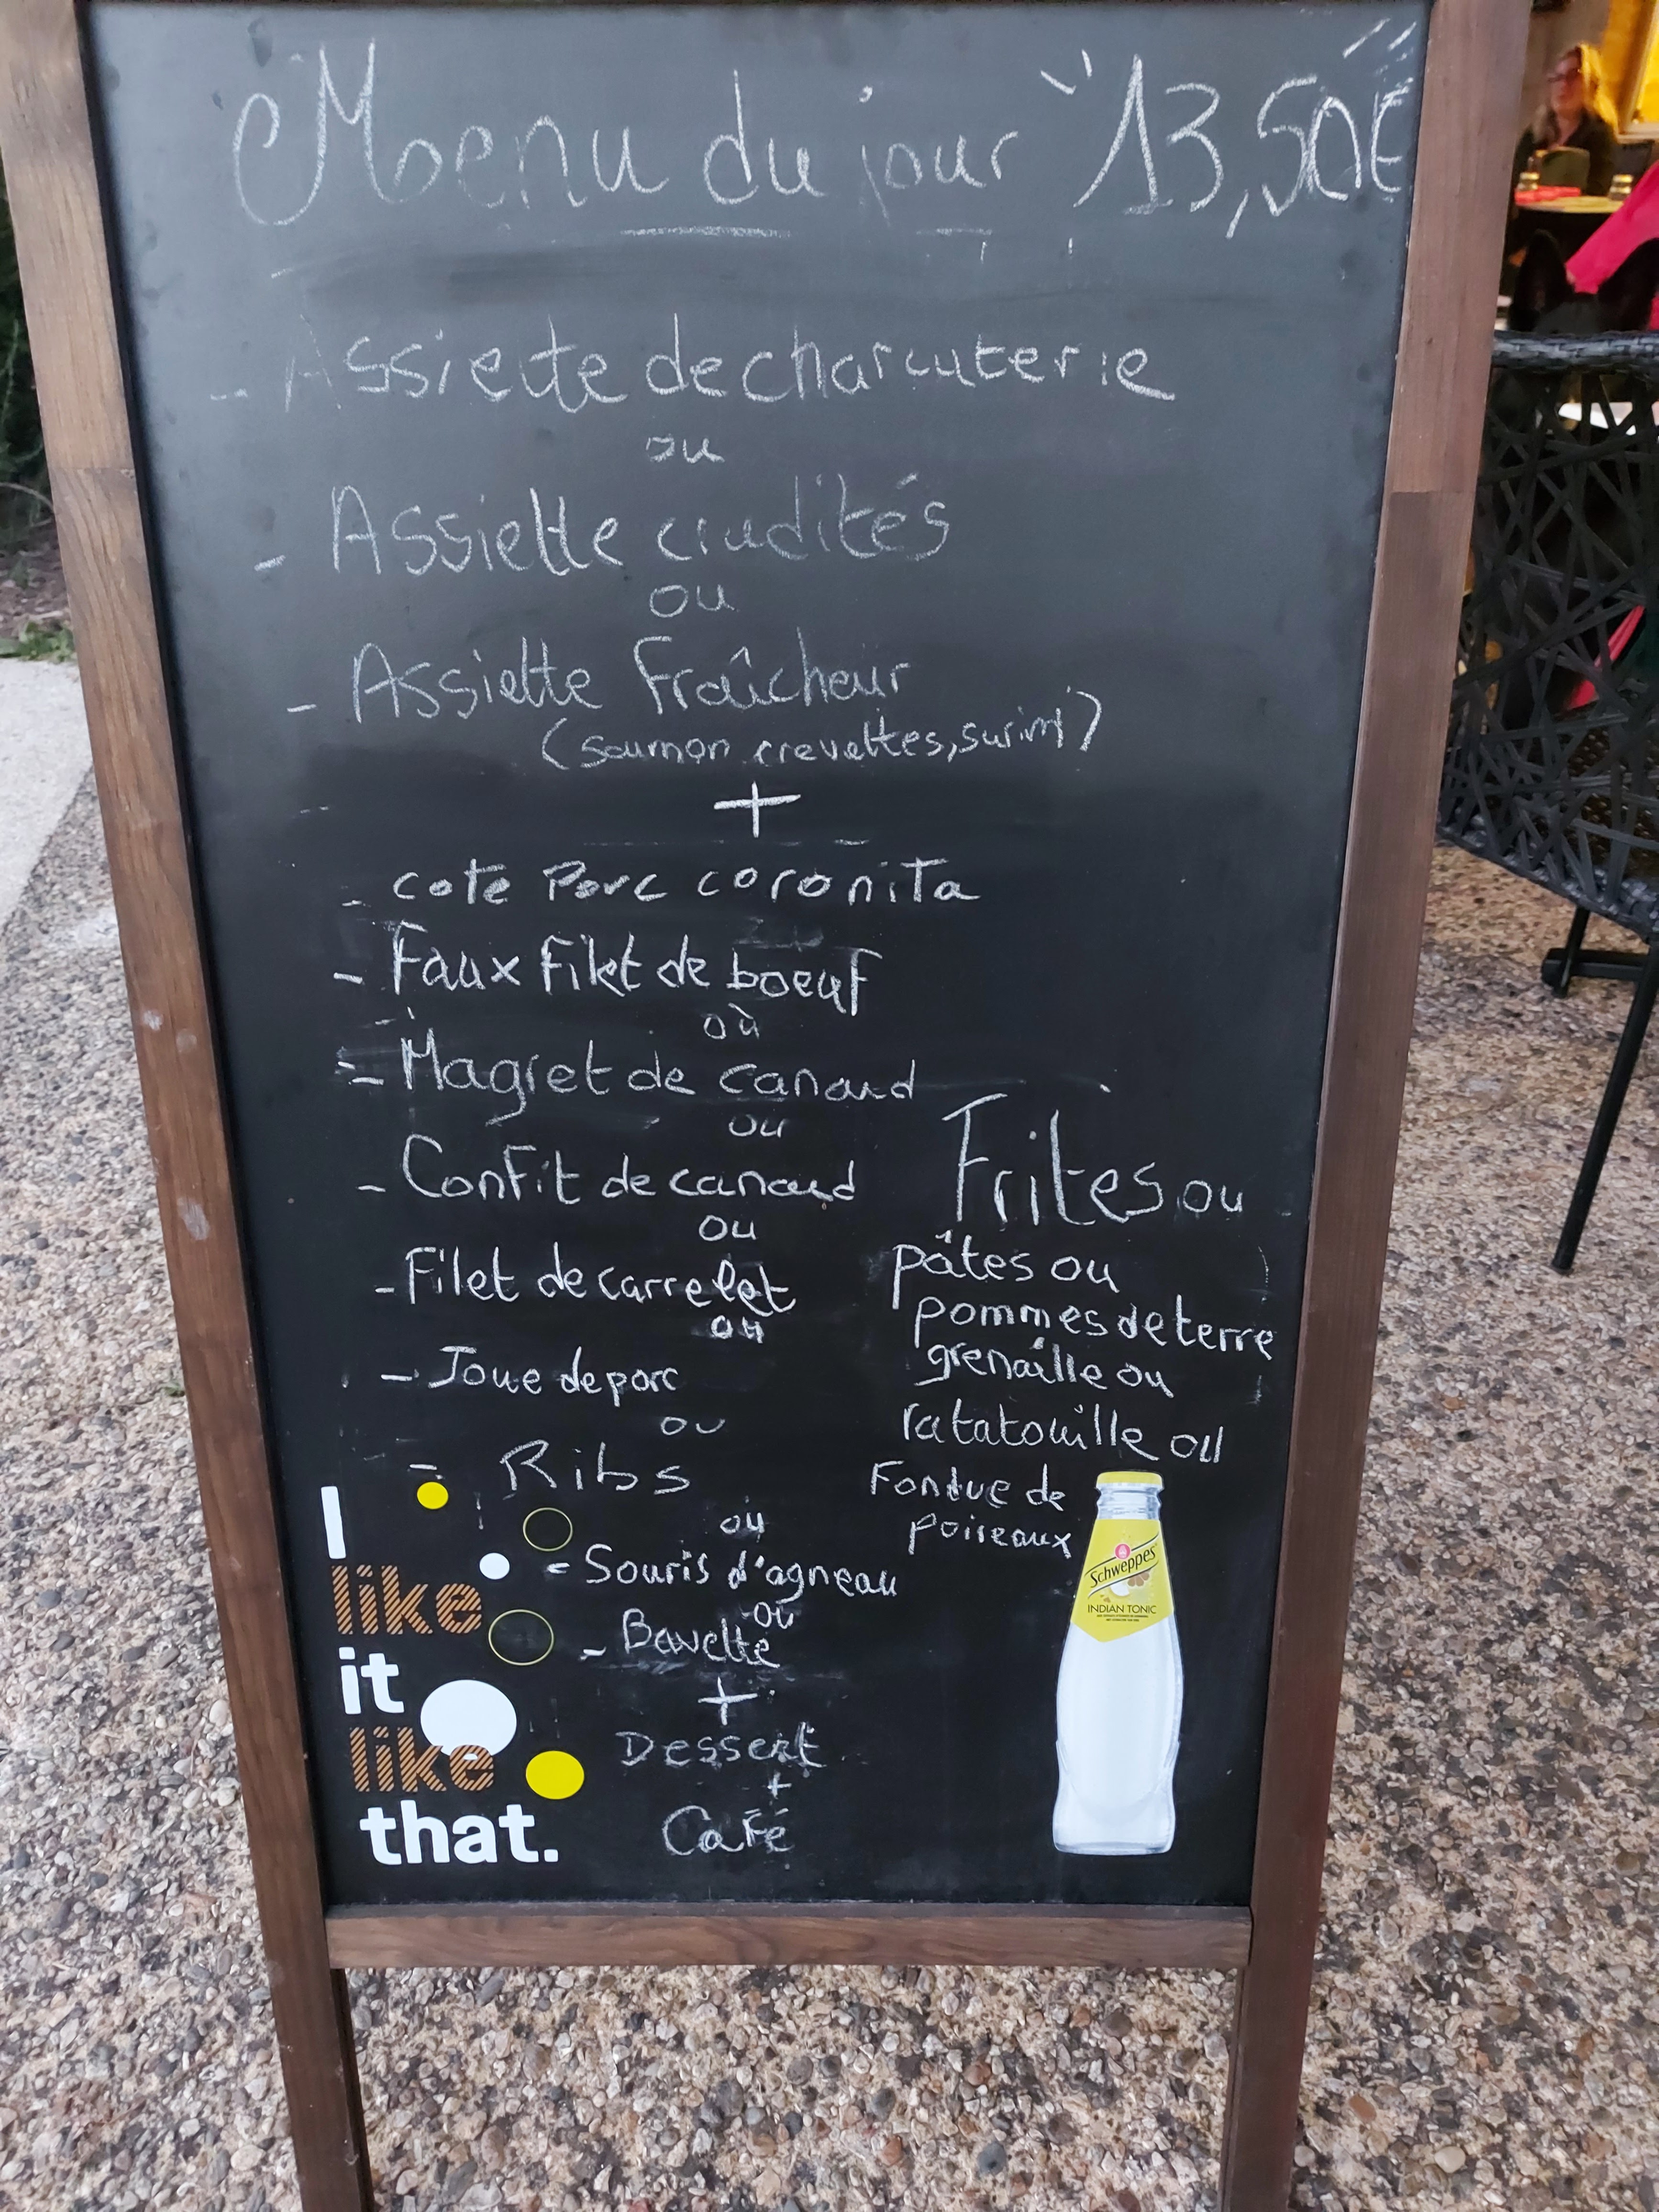 Menu du jour 13,50€
- Assiette de charcuterie
ou
- Assiette crudités
ou
- Assiette Fraîcheur
(saumon, crevettes, surimi)
+
- cote Porc coronita
- Faux filet de boeuf
où
- Magret de canard
ou
- Confit de canard
ou
- Filet de carrelet
ou
- Joue de porc
ou
- Ribs
où
- Souris d'agneau
ou
- Bavette
+
Dessert
+
Café
Frites ou
pâtes ou
pommes de terre
grenaille ou
ratatouille ou
Fondue de
poireaux
I
like
it
like
that.
Schweppes
INDIAN TONIC